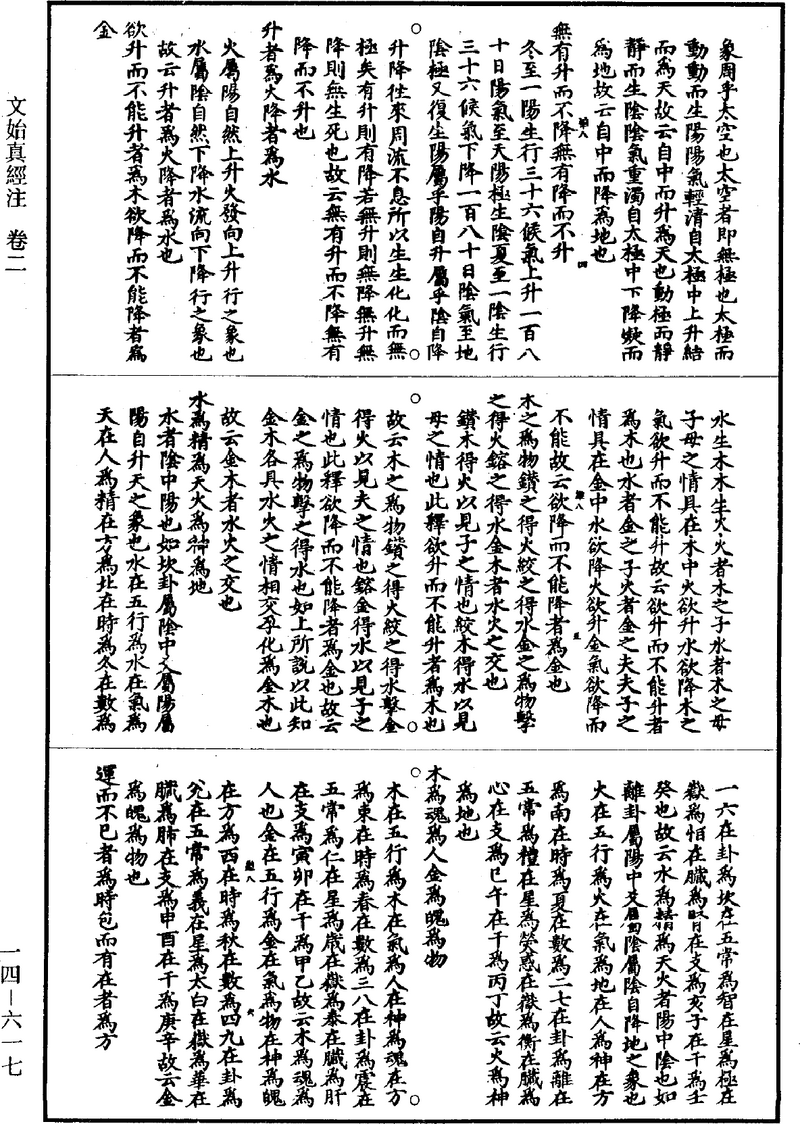 象周乎太空也太空者即無極也太極而
動動而生陽陽氣輕清自太極中上升結
而爲天故云自中而升爲天也動極而靜
靜而生陰陰氣重濁自太極中下降凝而
爲地故云自中而降爲地也
無有升而不降無有降而不升
冬至一陽生行三十六候氣上升一百八
十日陽氣至天陽極生陰夏至一陰生行
三十六候氣下降一百八十日陰氣至地
陰極又復生陽屬乎陽自升屬乎陰自降
升降往來周流不息所以生生化化而無
極矣有升則有降若無升則無降無升無
降則無生死也故云無有升而不降無有
降而不升也
升者爲火降者爲水
火屬陽自然上升火發向上升行之象也
水屬陰自然下降水流向下降行之象也
故云升者爲火降者爲水也
欲升而不能升者爲木欲降而不能降者爲
金
水生木木生火火者木之子水者木之母
子母之情具在木中火欲升水欲降木之
氣欲升而不能升故云欲升而不能升者
爲木也水者金之子火者金之夫夫子之
情具在金中水欲降火欲升金氣欲降而
不能故云欲降而不能降者爲金也
木之爲物鑽之得火絞之得水金之爲物擊
之得火鎔之得水金木者水火之交也
鑽木得火以見子之情也絞木得水以見
母之情也此釋欲升而不能升者爲木也
故云木之爲物鑽之得火絞之得水擊金
得火以見夫之情也鎔金得水以見子之
情也此釋欲降而不能降者爲金也故云
金之爲物擊之得水也如上所說以此知
金木各具水火之情相交孕化爲金木也
故云金木者水火之交也
水爲精爲天火爲神爲地
水者陰中陽也如坎卦屬陰中爻屬陽屬
陽自升天之象也水在五行爲水在氣爲
天在人爲精在方爲北在時爲冬在數爲
一六在卦爲坎在五常爲智在星爲極在
嶽爲恒在臟爲腎在支爲亥子在干爲壬
癸也故云水爲精爲天火者陽中陰也如
離卦屬陽中爻屬陰屬陰自降地之象也
火在五行爲火在氣爲地在人爲神在方
爲南在時爲夏在數爲二七在卦爲離在
五常爲禮在星爲熒惑在嶽爲衡在臟爲
心在支爲巳午在干爲丙丁故云火爲神
爲地也
木爲魂爲人金爲魄爲物
木在五行爲木在氣爲人在神爲魂在方
爲東在時爲春在數爲三八在卦爲震在
五常爲仁在星爲歲在嶽爲泰在臟爲肝
在支爲寅卯在干爲甲乙故云木爲魂爲
人也金在五行爲金在氣爲物在神爲魄
在方爲西在時爲秋在數爲四九在卦爲
兌在五常爲義在星爲太白在嶽爲華在
臟爲肺在支爲申酉在干爲庚辛故云金
爲魄爲物也
運而不已者爲時包而有在者爲方
文始真經注　卷二
一四—六一七